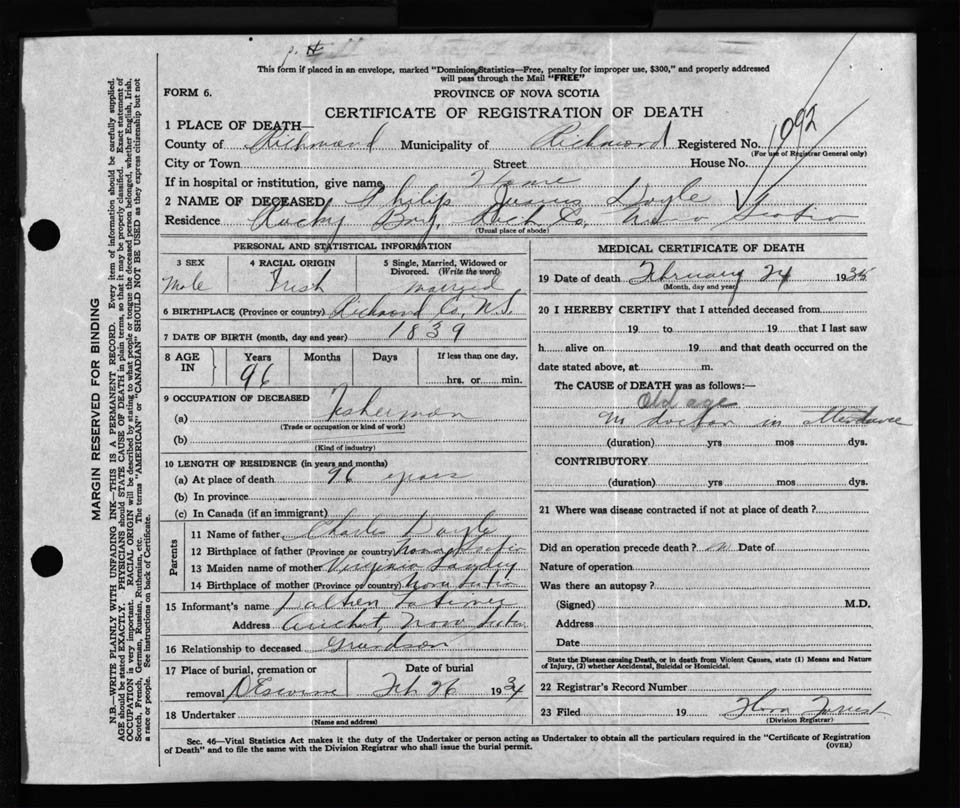 This form if placed in an envelope, marked "Dominion Statistics—Free, penalty for improper use, $300," and properly addressed
will pass through the Mail "FREE"
FORM 6.
PROVINCE OF NOVA SCOTIA
CERTIFICATE OF REGISTRATION OF DEATH
1092
1 PLACE OF DEATH—
County of Richmond Municipality of Richmond Registered No.
(For use of Registrar General only)
City or Town Street House No.
If in hospital or institution, give name Home
2 NAME OF DECEASED Philip Doyle
Residence Rocky Bay, Rich Co, Nova Scotia
(Usual place of abode)
PERSONAL AND STATISTICAL INFORMATION
3 SEX
Male
4 RACIAL ORIGIN
Irish
5 Single, Married, Widowed or
Divorced. (Write the word)
married
6 BIRTHPLACE (Province or country) Richmond Co, N.S.
7 DATE OF BIRTH (month, day and year) 1839
8 AGE IN
Years Months Days If less than one day,
96 hrs. or min.
9 OCCUPATION OF DECEASED
(a) Fisherman
(Trade or occupation or kind of work)
(b)
(Kind of industry)
10 LENGTH OF RESIDENCE (in years and months)
(a) At place of death 96 years
(b) In province
(c) In Canada (if an immigrant)
Parents
11 Name of father Charles Doyle
12 Birthplace of father (Province or country) Nova Scotia
13 Maiden name of mother Virginia Landry
14 Birthplace of mother (Province or country) Nova Scotia
15 Informant's name
Address Arichat, Nova Scotia
16 Relationship to deceased Grandson
17 Place of burial, cremation or
removal D'Escousse
Date of burial
Feb 26 1934
18 Undertaker
(Name and address)
MEDICAL CERTIFICATE OF DEATH
19 Date of death February 24 1935
(Month, day and year)
20 I HEREBY CERTIFY that I attended deceased from
19 to 19 that I last saw
h alive on 19 and that death occurred on the
date stated above, at m.
The CAUSE OF DEATH was as follows:—
Old age
No doctor in attendance
(duration) yrs mos dys.
CONTRIBUTORY
(duration) yrs mos dys.
21 Where was disease contracted if not at place of death?
Did an operation precede death? no Date of
Nature of operation
Was there an autopsy?
(Signed) M.D.
Address
Date
State the Disease causing Death, or in death from Violent Causes, state (1) Means and Nature
of Injury, (2) whether Accidental, Suicidal or Homicidal.
22 Registrar's Record Number
23 Filed 19
(Division Registrar)
Sec. 46—Vital Statistics Act makes it the duty of the Undertaker or person acting as Undertaker to obtain all the particulars required in the "Certificate of Registration
of Death" and to file the same with the Division Registrar who shall issue the burial permit.
(OVER)
MARGIN RESERVED FOR BINDING
N.B.—WRITE PLAINLY WITH UNFADING INK—THIS IS A PERMANENT RECORD. Every item of information should be carefully supplied.
AGE should be stated EXACTLY. PHYSICIANS should STATE CAUSE OF DEATH in plain terms, so that it may be properly classified. Exact statement of
OCCUPATION is very important. RACIAL ORIGIN will be described by stating to what people or tongue the deceased person belonged, whether English, Irish,
Scotch, French, German, Russian, Ruthenian, etc. The terms "AMERICAN" or "CANADIAN" SHOULD NOT BE USED as they express citizenship but not
a race or people. See instructions on back of Certificate.